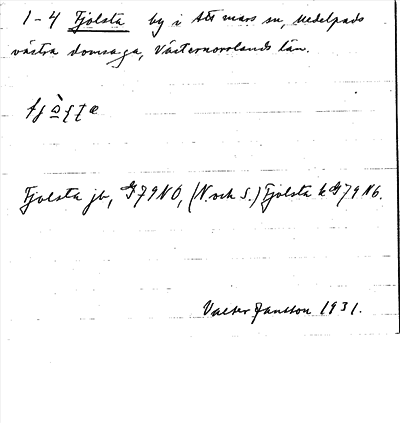 1-4 Fjolsta by i Attmars sn, Medelpads
västra domsaga, Västernorrlands län.
Fjolsta jb, G79NO, (N. och S.) Fjolsta k G79N6.
Valter Jansson 1931.